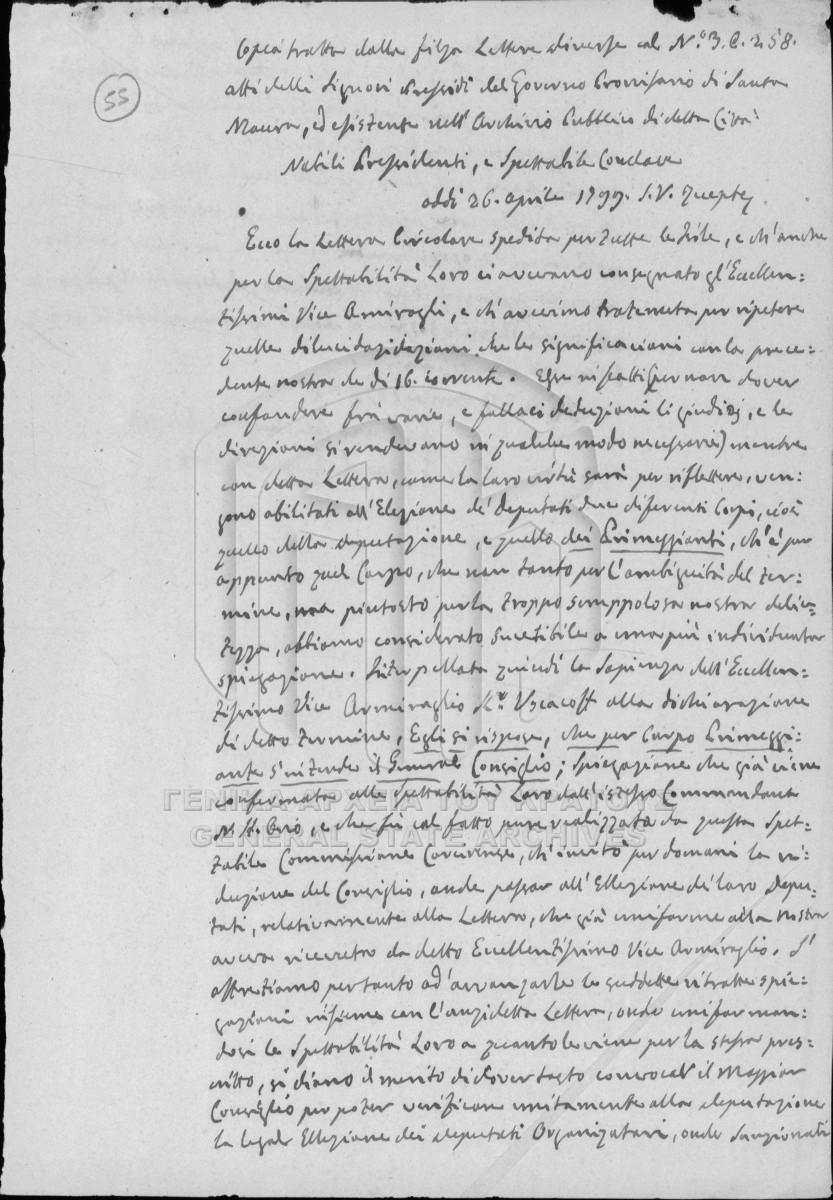 55
Copia tratta dalla filza Lettere diverse al N.o 3. C. 258.
atti delli Signori Pressidi del Governo Provisorio di Santa
Maura, ed esistente nell' Archivio Pubblico di detta Città
Nobili Pressidenti, e Spettabile Conclave
addi 26. aprile 1799. S.V.
Ecco la Lettera Circolare spedita per tutte le Isole, e ch'anche
per la Spettabilità Loro ci avevano consegnato gl'Eccellen=
tissimi Vice Amiragli, e ch'avessimo trattenuta per ripetere
quelle dilucidazidazioni che le significassimo con la prece=
dente nostra de di 16. corrente. Esse infatti (per non dover
confondere frà varie, e fallaci deduzioni li giudizj, e le
direzioni si rendevano in qualche modo necessarie) mentre
con detta Lettera, come la loro virtù sarà per riflettere, ven=
gono abilitati all'Elezione de' deputati due diferenti Corpi, cioè
quello della deputazione, e quello dei Primeggianti, ch'è per
appunto quel Corpo, che non tanto per l'ambiguità del ter=
mine, ma piutosto per la troppo scruppolosa nostra delica=
tezza, abbiamo considerato sucetibile a una più individuata
spiegazione. Interpellata quindi la Sapienza dell'Eccellen=
tissimo Vice Armiraglio K.r Uscacoff alla dichiarazione
di detto termine, Egli si rispose, che per Corpo Primeggi=
ante s'intende il General Consiglio; Spiegazione che già viene
confermata alle Spettabilità Loro dall'istesso Commandante
e che fù col fatto pure realizzata da questa Spet=
tabile Commissione Corcirense, ch'invitò per domani la ri=
duzione del Consiglio, onde passar all'Ellezione de' loro depu=
tati, relativamente alla Lettera, che già uniforme alla nostra
aveva ricevuto da detto Eccellentissimo Vice Armiraglio. S'
affrettiamo pertanto ad'avvanzarle le suddette ritratte spie=
gazioni insieme con l'anzidetta Lettera, onde uniforman=
dosi le Spettabilità Loro a quanto le viene per la stessa pres=
critto, si diano il merito di dover tosto convocar il Maggior
Consiglio per poter verificare unitamente alla deputazione
la legale Ellezione dei deputati Organizatori, onde Sanzionati
ΓΕΝΙΚΑ ΑΡΧΕΙΑ ΤΟΥ ΚΡΑΤΟΥΣ
GENERAL STATE ARCHIVES